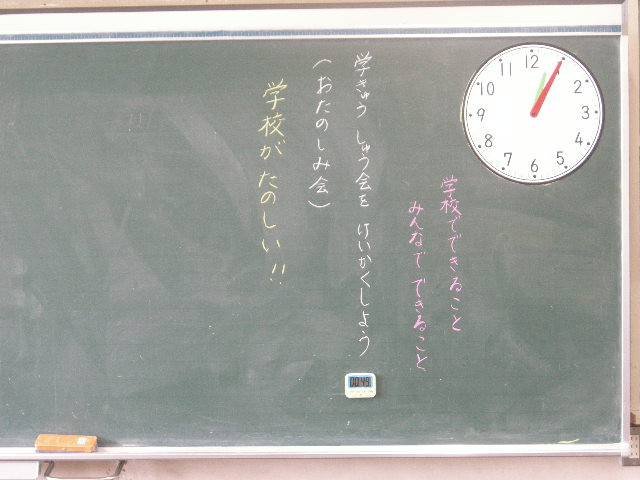 学校でできること
みんなで できること
学きゅう しゅう会を けいかくしよう
(おたのしみ会)
学校が たのしい!!
12
1
2
3
4
5
6
7
8
9
10
11
00:49